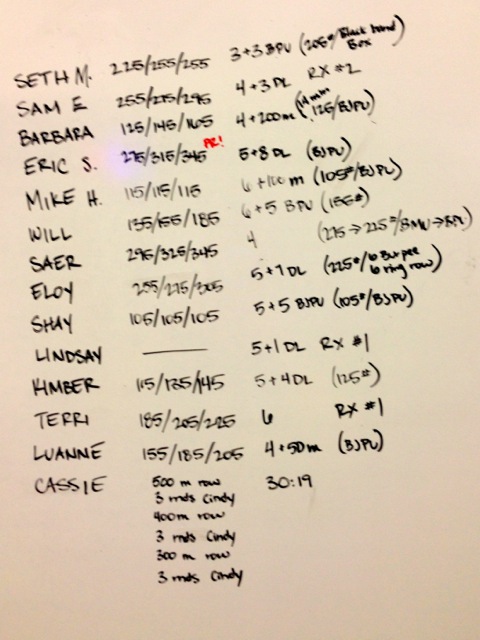 SETH M. 225/255/255 3+3 BPU (205#/Black band Box)
SAM E 255/275/295 4+3 DL RX #2
BARBARA 125/145/165 4+200m (125/BJPU)
ERIC S. 275/315/345 PR! 5+8 DL (BJPU)
MIKE H. 115/115/115 6+100 m (105#/BJPU)
WILL 135/155/185 6+5 BPU (155#)
SAER 295/325/345 4 (275→225#/BMU→BPU)
ELOY 255/275/305 5+7 DL (225#/6 Burpee 6 ring row)
SHAY 105/105/105 5+5 BJPU (105#/BJPU)
LINDSAY —— 5+1 DL RX #1
KIMBER 115/135/145 5+4 DL (125#)
TERRI 185/205/225 6 RX #1
LUANNE 155/185/205 4+50m (BJPU)
CASSIE 500 m row 30:19
3 rnds Cindy
400m row
3 rnds Cindy
300 m row
3 rnds Cindy